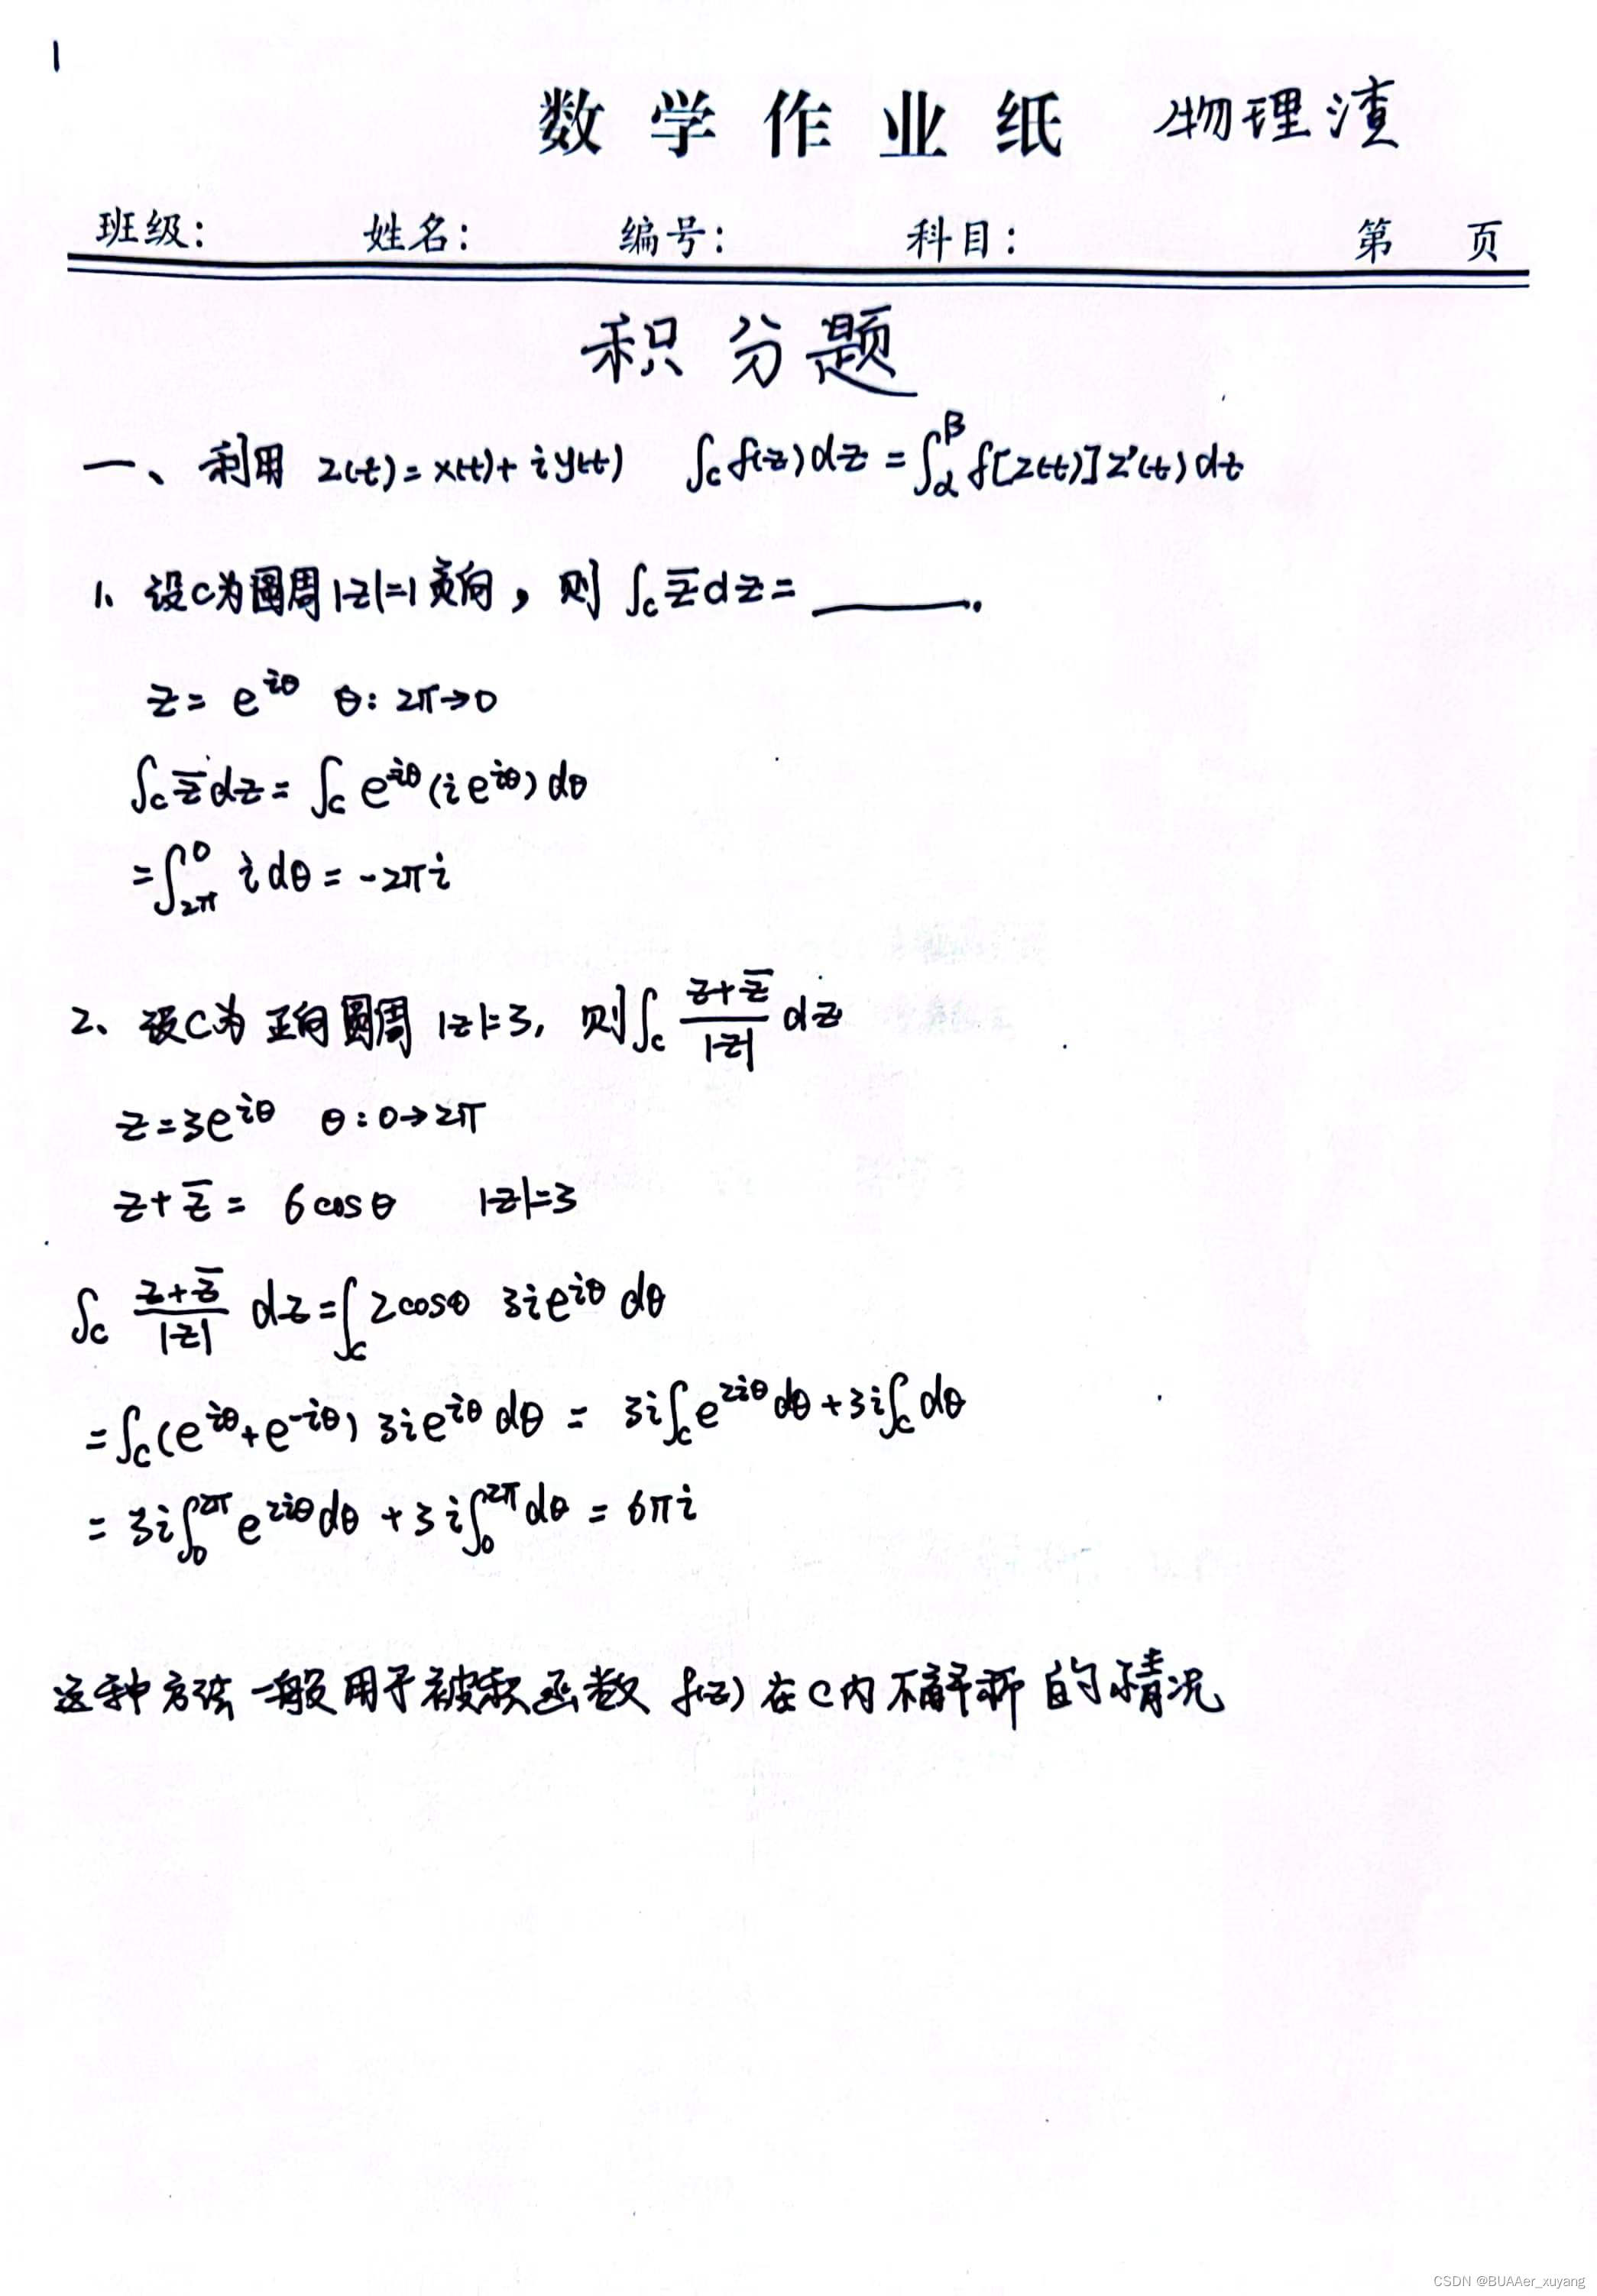 1
数学作业纸 物理渣
班级: 姓名: 编号: 科目: 第 页
积分题
一、利用 z(t)=x(t)+iy(t) ∫_C f(z)dz=∫_α^β f[z(t)]z'(t)dt
1、设C为圆周|z|=1负向，则 ∫_C z̅dz=______.
z=e^{iθ} θ:2π→0
∫_C z̅dz=∫_C e^{-iθ}(ie^{iθ})dθ
=∫_{2π}^0 idθ=-2πi
2、设C为正向圆周|z|=3, 则∫_C (z+z̅)/|z| dz
z=3e^{iθ} θ:0→2π
z+z̅=6cosθ |z|=3
∫_C (z+z̅)/|z| dz=∫_C 2cosθ 3ie^{iθ}dθ
=∫_C(e^{iθ}+e^{-iθ})3ie^{iθ}dθ=3i∫_C e^{2iθ}dθ+3i∫_C dθ
=3i∫_0^{2π}e^{2iθ}dθ+3i∫_0^{2π}dθ=6πi
这种方法一般用于被积函数 f(z) 在C内不解析的情况
CSDN @BUAAer_xuyang